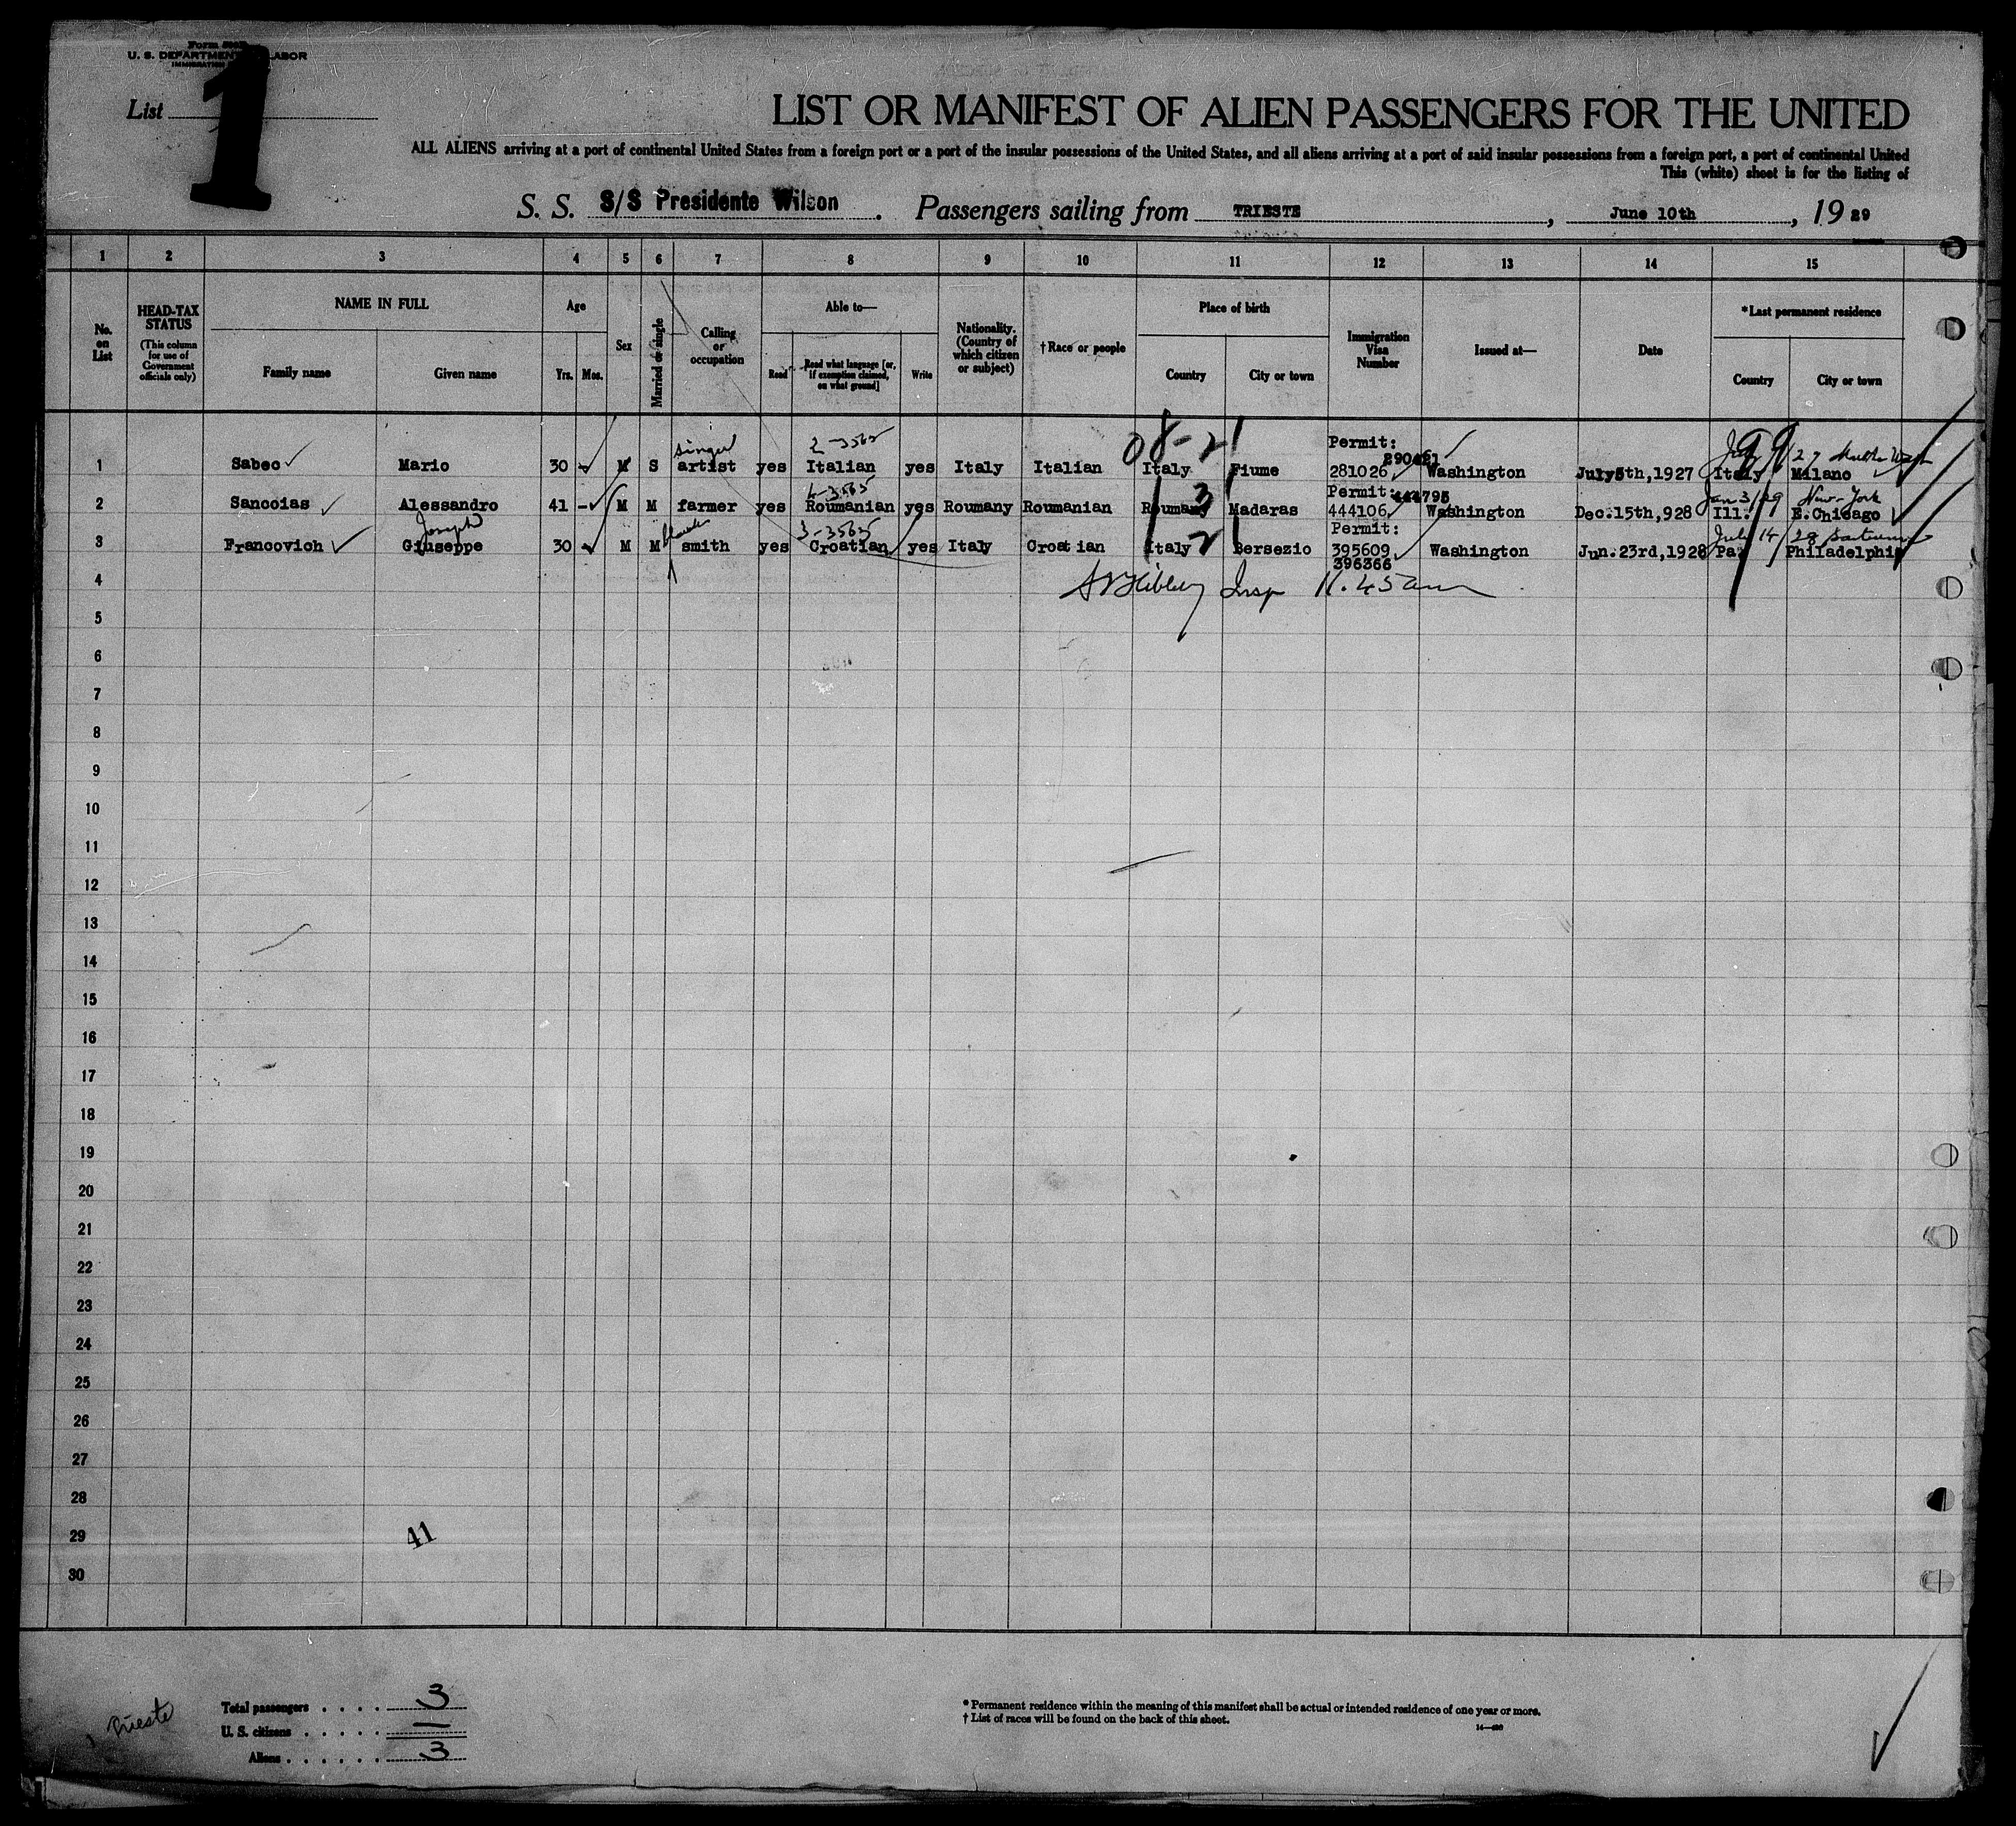 U. S. DEPARTMENT LABOR
1
List
LIST OR MANIFEST OF ALIEN PASSENGERS FOR THE UNITED
ALL ALIENS arriving at a port of continental United States from a foreign port or a port of the insular possessions of the United States, and all aliens arriving at a port of said insular possessions from a foreign port, a port of continental United
This (white) sheet is for the listing of
S. S. S/S Presidente Wilson. Passengers sailing from TRIESTE, June 10th, 1929
1 2 3 4 5 6 7 8 9 10 11 12 13 14 15
No. on List
HEAD-TAX STATUS (This column for use of Government officials only)
NAME IN FULL
Family name Given name
Age
Yrs. Mos.
Sex
Married or single
Calling or occupation
Able to—
Read Read what language [or, if exemption claimed, on what ground] Write
Nationality. (Country of which citizen or subject)
†Race or people
Place of birth
Country City or town
Immigration Visa Number
Issued at—
Date
*Last permanent residence
Country City or town
singer 2-3565 08-21 Permit: 290421 July 9 / 27
1 Sabec Mario 30 M S artist yes Italian yes Italy Italian Italy Fiume 281026 Washington July5th,1927 Italy Milano
4-3565 3 Permit: 444795 Jan 3/29 New-York
2 Sancoias Alessandro 41 - M M farmer yes Roumanian yes Roumany Roumanian Roumany Madaras 444106 Washington Dec.15th,928 Ill. E.Chicago
Joseph 3-3565 2 Permit: July 14/28 Saturnia
3 Francovich Giuseppe 30 M M smith yes Croatian yes Italy Croatian Italy Bersezio 395609 Washington Jun.23rd,1928 Pa. Philadelphia
396366
4 Insp 11.45 am
5
6
7
8
9
10
11
12
13
14
15
16
17
18
19
20
21
22
23
24
25
26
27
28
29 41
30
Trieste
Total passengers . . . . 3
U. S. citizens . . . . . —
Aliens . . . . . . 3
* Permanent residence within the meaning of this manifest shall be actual or intended residence of one year or more.
† List of races will be found on the back of this sheet.